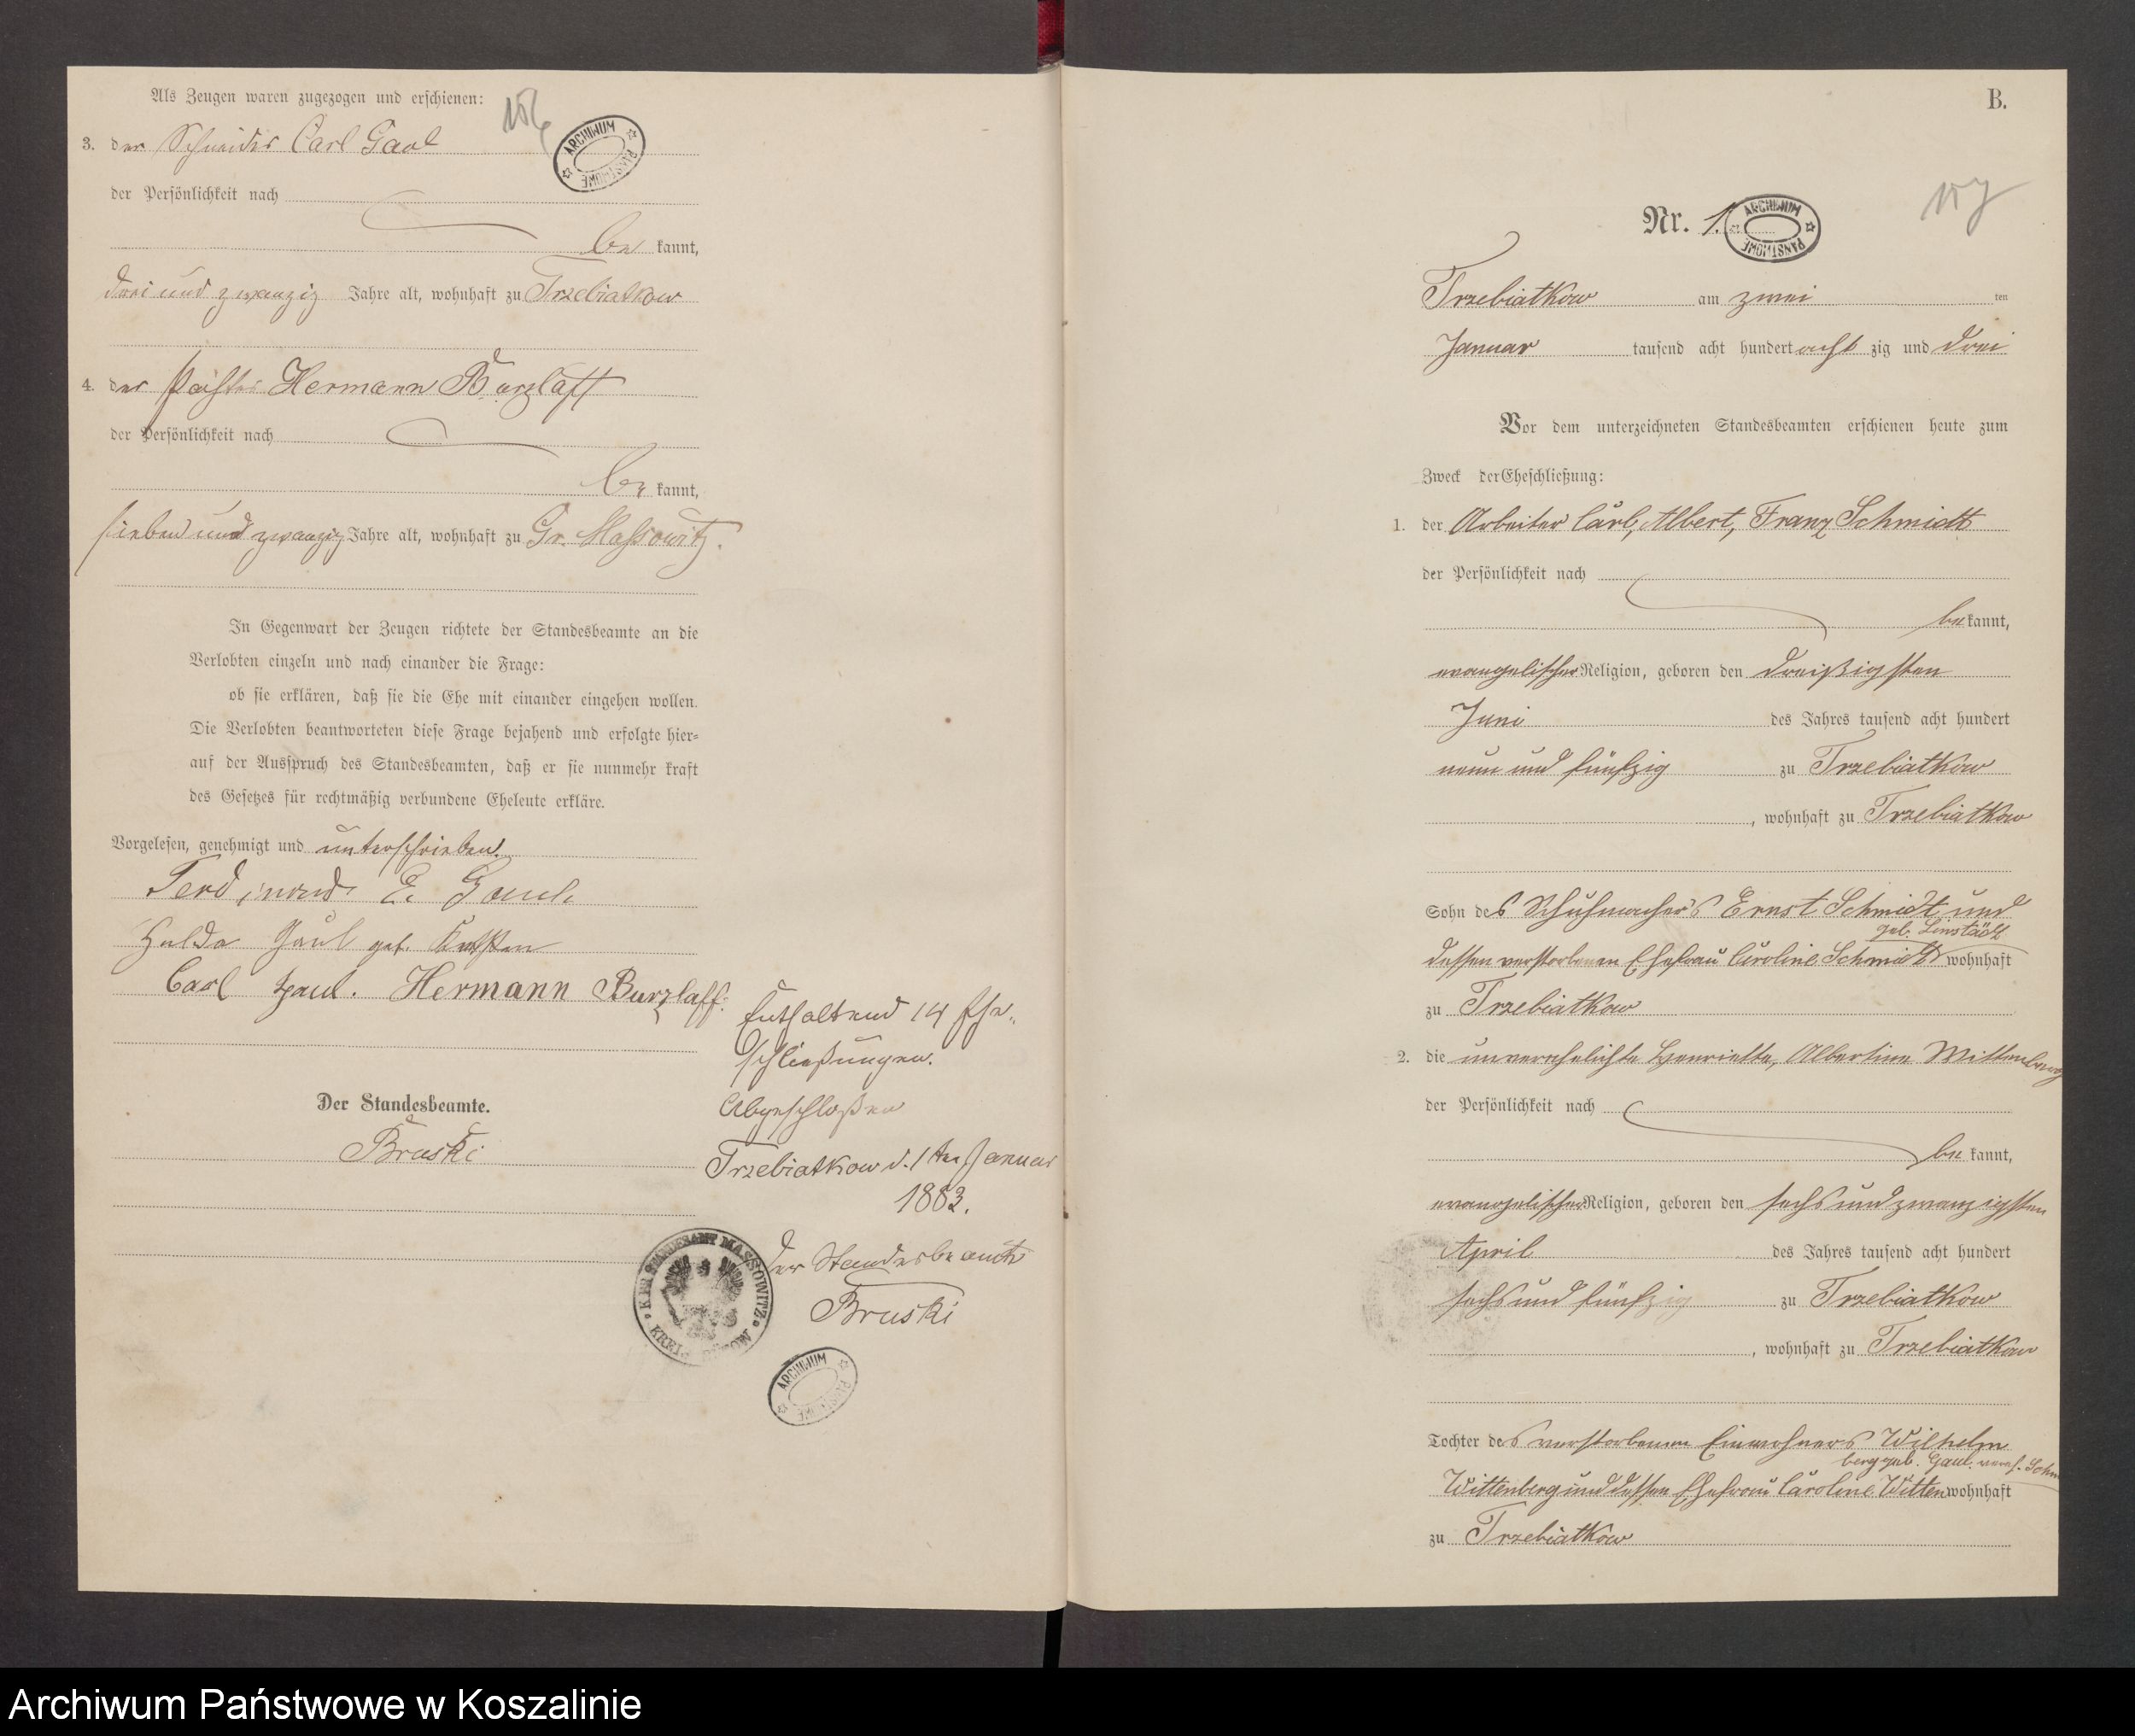 Als Zeugen waren zugezogen und erschienen:
156
ARCHIWUM PAŃSTWOWE
3. der Schneider Carl Gaul
der Persönlichkeit nach
be kannt,
drei und zwanzig Jahre alt, wohnhaft zu Trzebiatkow
4. der Hermann Burzlaff
der Persönlichkeit nach
be kannt,
sieben und zwanzig Jahre alt, wohnhaft zu Gr. Massowitz.
In Gegenwart der Zeugen richtete der Standesbeamte an die
Verlobten einzeln und nach einander die Frage:
ob sie erklären, daß sie die Ehe mit einander eingehen wollen.
Die Verlobten beantworteten diese Frage bejahend und erfolgte hier-
auf der Ausspruch des Standesbeamten, daß er sie nunmehr kraft
des Gesetzes für rechtmäßig verbundene Eheleute erkläre.
Vorgelesen, genehmigt und unterschrieben.
Ferdinand E. Gaul
Hulda Gaul geb.
Carl Gaul. Hermann Burzlaff.
Der Standesbeamte.
Bruski
Enthaltend 14 Ehe-
schließungen.
Abgeschloßen
Trzebiatkow d. 1ten Januar
1883.
der Standesbeamte
Bruski
STANDESAMT MASSOWITZ KREIS BÜTOW
ARCHIWUM PAŃSTWOWE
B.
157
Nr. 1.
ARCHIWUM PAŃSTWOWE
Trzebiatkow am zwei ten
Januar tausend acht hundert acht zig und drei
Vor dem unterzeichneten Standesbeamten erschienen heute zum
Zweck der Eheschließung:
1. der Arbeiter Carl, Albert, Franz Schmidt
der Persönlichkeit nach
be kannt,
evangelischer Religion, geboren den dreißigsten
Juni des Jahres tausend acht hundert
neun und fünfzig zu Trzebiatkow
, wohnhaft zu Trzebiatkow
Sohn des Schuhmachers Ernst Schmidt und
geb. Linstädt
dessen verstorbenen Ehefrau Caroline Schmidt wohnhaft
zu Trzebiatkow
2. die unverehelichte Henriette, Albertine Wittenberg
der Persönlichkeit nach
be kannt,
evangelischer Religion, geboren den sechs und zwanzigsten
April des Jahres tausend acht hundert
sechs und fünfzig zu Trzebiatkow
, wohnhaft zu Trzebiatkow
Tochter des verstorbenen Einwohners Wilhelm
berg geb. Gaul,
Wittenberg und dessen Ehefrau Caroline Witten wohnhaft
zu Trzebiatkow
Archiwum Państwowe w Koszalinie